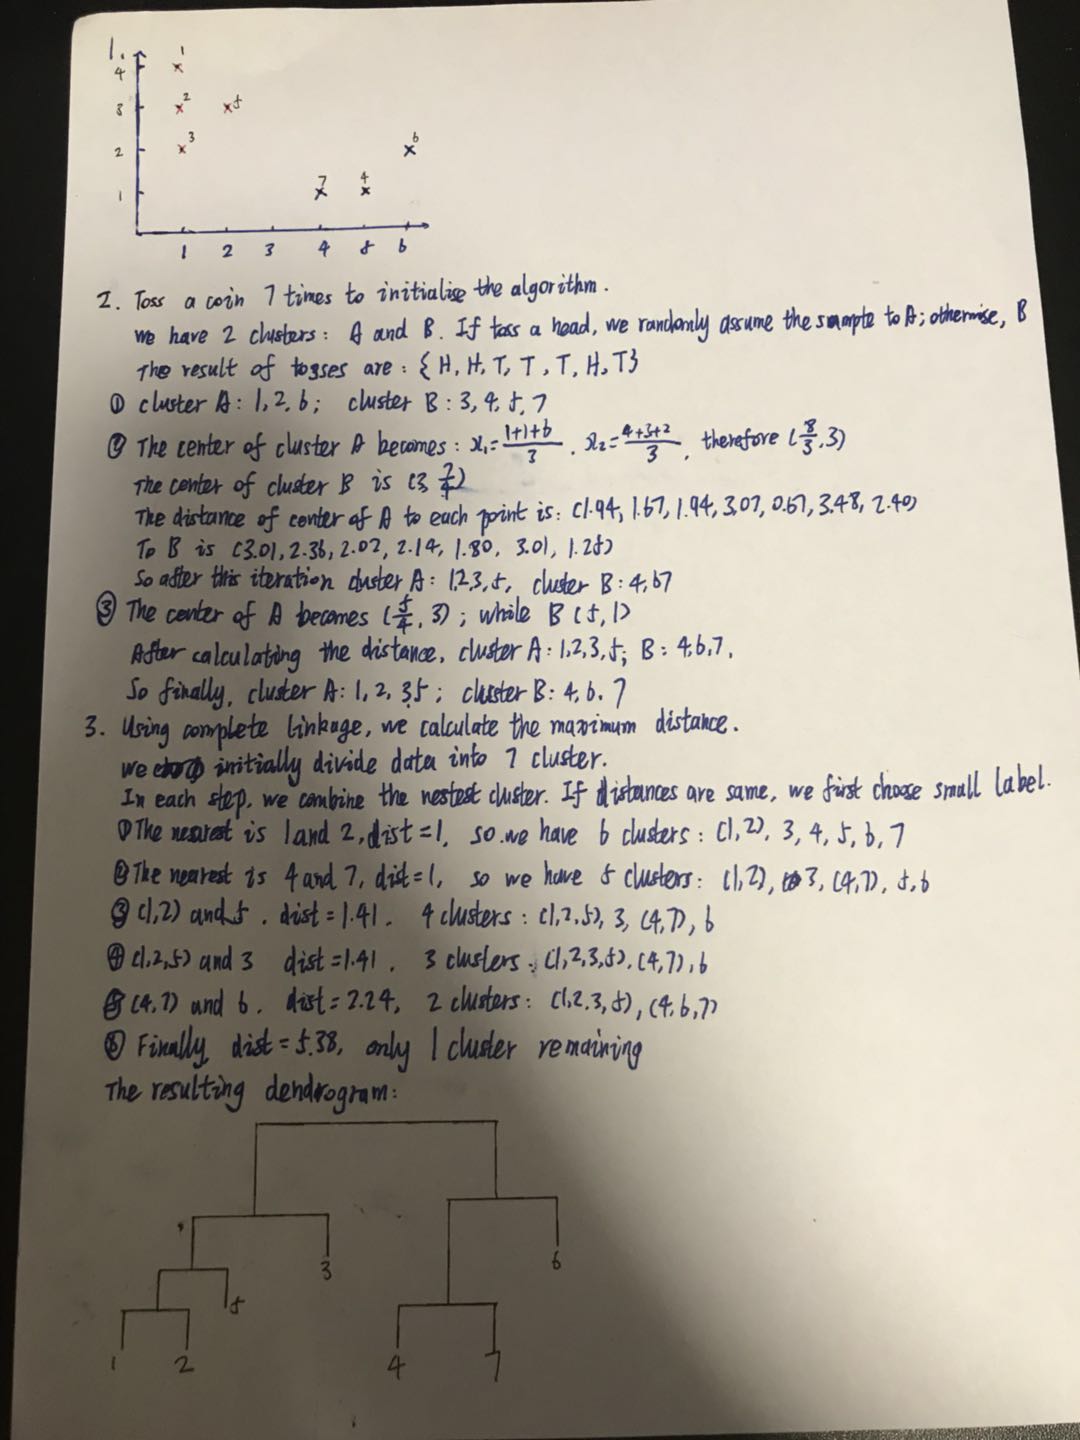 1.
4
3
2
1
1
2
3
5
6
7
4
1 2 3 4 5 6
2. Toss a coin 7 times to initialise the algorithm.
We have 2 clusters: A and B. If toss a head, we randomly assume the sample to A; otherwise, B
The result of tosses are: {H, H, T, T, T, H, T}
① cluster A: 1, 2, 6; cluster B: 3, 4, 5, 7
② The center of cluster A becomes: x₁ = (1+1+6)/3, x₂ = (4+3+2)/3, therefore (8/3, 3)
The center of cluster B is (3, 7/4)
The distance of center of A to each point is: (1.94, 1.67, 1.94, 3.07, 0.67, 3.48, 2.40)
To B is (3.01, 2.36, 2.02, 2.14, 1.80, 3.01, 1.25)
So after this iteration cluster A: 1,2,3,5, cluster B: 4,67
③ The center of A becomes (5/4, 3); while B (5, 1)
After calculating the distance, cluster A: 1,2,3,5; B: 4,6,7,
So finally, cluster A: 1, 2, 3,5; cluster B: 4, 6, 7
3. Using complete linkage, we calculate the maximum distance.
We initially divide data into 7 cluster.
In each step, we combine the nestest cluster. If distances are same, we first choose small label.
① The nearest is 1 and 2, dist = 1, so we have 6 clusters: (1,2), 3, 4, 5, 6, 7
② The nearest is 4 and 7, dist = 1, so we have 5 clusters: (1,2), 3, (4,7), 5,6
③ (1,2) and 5. dist = 1.41. 4 clusters: (1,2,5), 3, (4,7), 6
④ (1,2,5) and 3 dist = 1.41. 3 clusters: (1,2,3,5), (4,7), 6
⑤ (4,7) and 6. dist = 2.24, 2 clusters: (1,2,3,5), (4,6,7)
⑥ Finally, dist = 5.38, only 1 cluster remaining
The resulting dendrogram:
3
6
5
1 2 4 7